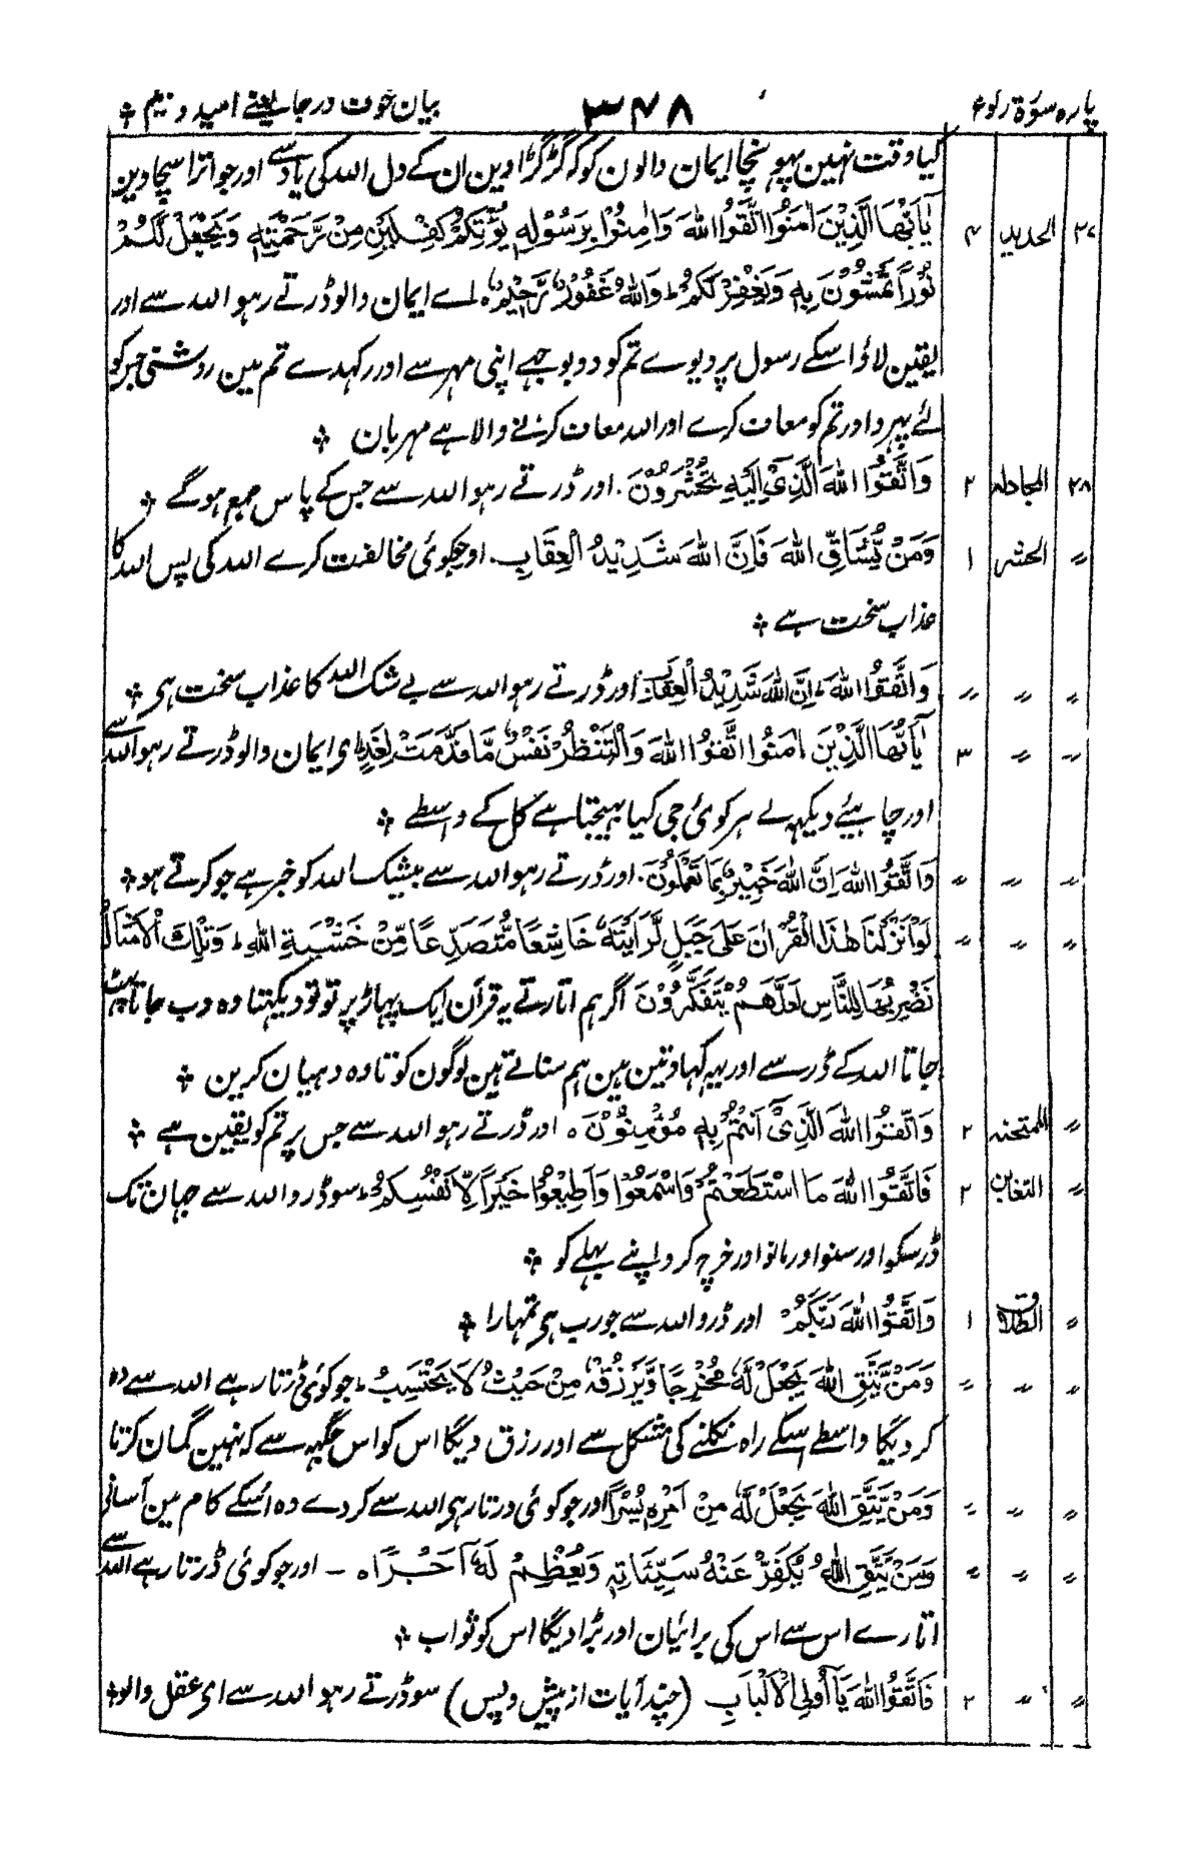 پارہ سورۃ رکوع ۳۴۸ بیان خوف و رجا یعنے امید و بیم ؞
کیا وقت نہین پہونچا ایمان والون کو کہ گڑگڑاوین ان کے دل اللہ کی یاد سے اور جو اترا سچا دین
۲۷ الحدید ۴ يٰٓاَيُّهَا الَّذِيْنَ اٰمَنُوا اتَّقُوا اللّٰهَ وَاٰمِنُوْا بِرَسُوْلِهٖ يُؤْتِكُمْ كِفْلَيْنِ مِنْ رَّحْمَتِهٖ وَيَجْعَلْ لَّكُمْ
نُوْرًا تَمْشُوْنَ بِهٖ وَيَغْفِرْ لَكُمْ ؕ وَاللّٰهُ غَفُوْرٌ رَّحِيْمٌ ۰ اے ایمان والو ڈرتے رہو اللہ سے اور
یقین لاؤ اسکے رسول پر دیوے تم کو دو بوجہے اپنی مہر سے اور رکہدے تم مین روشنی جسکو
لئے پہرو اور تم کو معاف کرے اور اللہ معاف کرنے والا ہے مہربان ؞
۲۸ المجادلہ ۲ وَاتَّقُوا اللّٰهَ الَّذِيْٓ اِلَيْهِ تُحْشَرُوْنَ ۔ اور ڈرتے رہو اللہ سے جس کے پاس جمع ہوگے ؞
〃 الحشر ۱ وَمَنْ يُّشَاقِّ اللّٰهَ فَاِنَّ اللّٰهَ شَدِيْدُ الْعِقَابِ ۔ اور جو کوئی مخالفت کرے اللہ کی پس اللہ کا
عذاب سخت ہے ؞
〃 〃 〃 وَاتَّقُوا اللّٰهَ ؕ اِنَّ اللّٰهَ شَدِيْدُ الْعِقَابِ اور ڈرتے رہو اللہ سے بے شک اللہ کا عذاب سخت ہی ؞
〃 〃 ۳ يٰٓاَيُّهَا الَّذِيْنَ اٰمَنُوا اتَّقُوا اللّٰهَ وَلْتَنْظُرْ نَفْسٌ مَّا قَدَّمَتْ لِغَدٍ ای ایمان والو ڈرتے رہو اللہ سے
اور چاہیئے دیکہہ لے ہر کوئی جی کیا بہیجتا ہے کل کے واسطے ؞
〃 〃 〃 وَاتَّقُوا اللّٰهَ اِنَّ اللّٰهَ خَبِيْرٌۢ بِمَا تَعْمَلُوْنَ ۔ اور ڈرتے رہو اللہ سے بیشک اللہ کو خبر ہے جو کرتے ہو ؞
〃 〃 〃 لَوْ اَنْزَلْنَا هٰذَا الْقُرْاٰنَ عَلٰى جَبَلٍ لَّرَاَيْتَهٗ خَاشِعًا مُّتَصَدِّعًا مِّنْ خَشْيَةِ اللّٰهِ ؕ وَتِلْكَ الْاَمْثَالُ
نَضْرِبُهَا لِلنَّاسِ لَعَلَّهُمْ يَتَفَكَّرُوْنَ اگر ہم اتارتے یہ قرآن ایک پہاڑ پر تو تو دیکہتا وہ دب جاتا پہٹ
جاتا اللہ کے ڈر سے اور یہہ کہاوتین ہین ہم سناتے ہین لوگون کو تا وہ دہیان کرین ؞
〃 الممتحنہ ۲ وَاتَّقُوا اللّٰهَ الَّذِيْٓ اَنْتُمْ بِهٖ مُؤْمِنُوْنَ ۰ اور ڈرتے رہو اللہ سے جس پر تم کو یقین ہے ؞
〃 التغابن ۲ فَاتَّقُوا اللّٰهَ مَا اسْتَطَعْتُمْ وَاسْمَعُوْا وَاَطِيْعُوْا خَيْرًا لِّاَنْفُسِكُمْ ؕ سو ڈرو اللہ سے جہان تک
ڈر سکو اور سنو اور مانو اور خرچ کرو اپنے بہلے کو ؞
〃 الطلاق ۱ وَاتَّقُوا اللّٰهَ رَبَّكُمْ اور ڈرو اللہ سے جو رب ہی تمہارا ؞
〃 〃 〃 وَمَنْ يَّتَّقِ اللّٰهَ يَجْعَلْ لَّهٗ مَخْرَجًا وَّيَرْزُقْهُ مِنْ حَيْثُ لَا يَحْتَسِبُ ؕ جو کوئی ڈرتا رہے اللہ سے وہ
کر دیگا واسطے اسکے راہ نکلنے کی مشکل سے اور رزق دیگا اس کو اس جگہہ سے کہ نہین گمان کرتا
〃 〃 〃 وَمَنْ يَّتَّقِ اللّٰهَ يَجْعَلْ لَّهٗ مِنْ اَمْرِهٖ يُسْرًا اور جو کوئی ڈرتا رہی اللہ سے کر دے وہ اسکے کام مین آسانی
〃 〃 〃 وَمَنْ يَّتَّقِ اللّٰهَ يُكَفِّرْ عَنْهُ سَيِّئَاتِهٖ وَيُعْظِمْ لَهٗٓ اَجْرًا ۰ – اور جو کوئی ڈرتا رہے اللہ سے
اتارے اس سے اس کی برائیان اور بڑا دیگا اس کو ثواب ؞
〃 〃 ۲ فَاتَّقُوا اللّٰهَ يَآ اُولِى الْاَلْبَابِ (چند آیات از پیش و پس) سو ڈرتے رہو اللہ سے ای عقل والو ؞